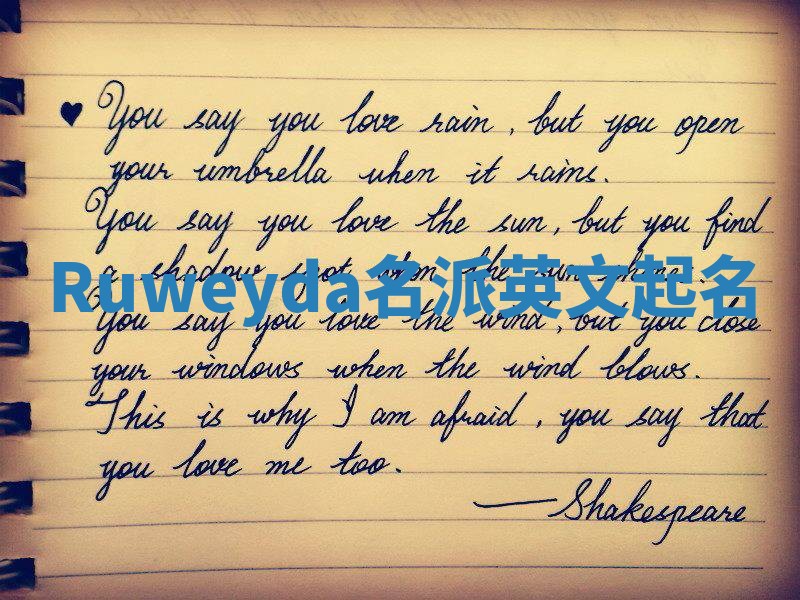 ♥ You say you love rain, but you open
your umbrella when it rains.
You say you love the sun, but you find
a shadow spot when the sun shines.
Ruweyda名派英文起名
You say you love the wind, but you close
your windows when the wind blows.
This is why I am afraid, you say that
you love me too.
—Shakespeare